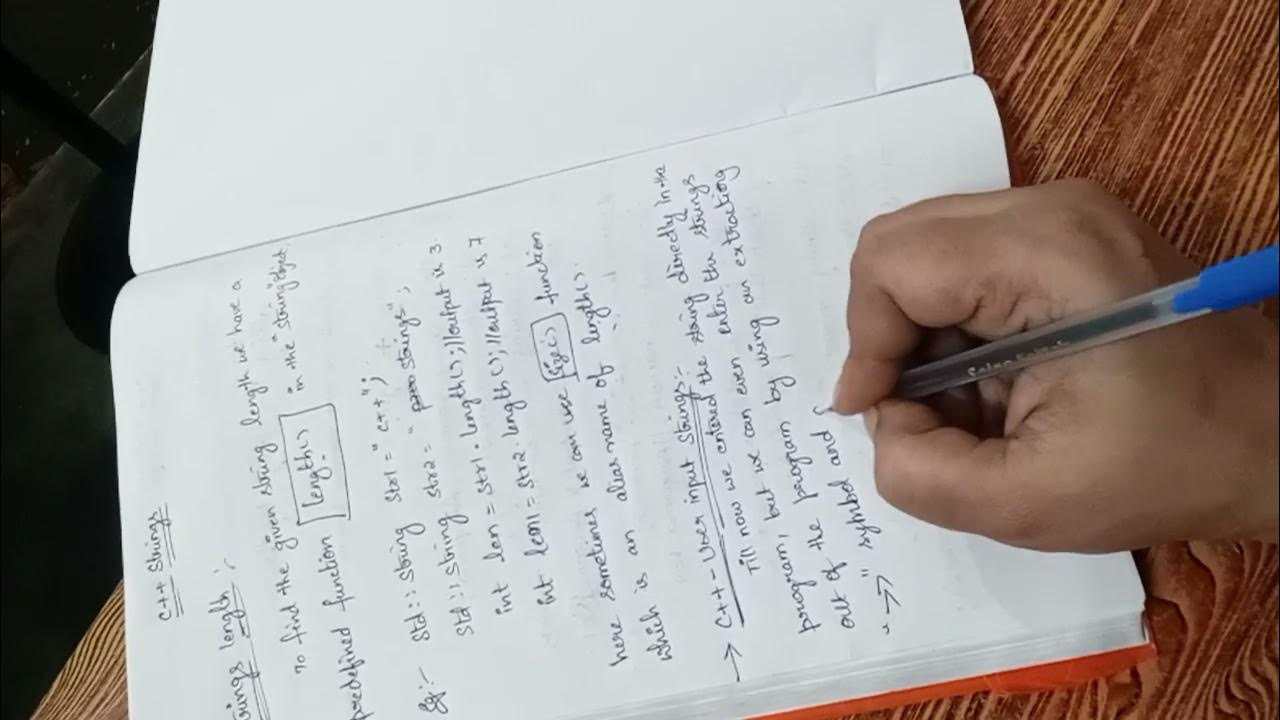 C++ Strings
rings length :-
To find the given string length we have a
predefined function length() in the "string" object.
Eg:- std::string str1 = "c++";
std::string str2 = "Strings";
int len = str1.length(); //output is 3.
int len1 = str2.length(); //output is 7
here sometimes we can use size() function
which is an alias name of length().
→ C++ - User input strings :-
Till now we entered the string directly in the
program, but we can even enter the strings
out of the program by using an extraction
">>" symbol and